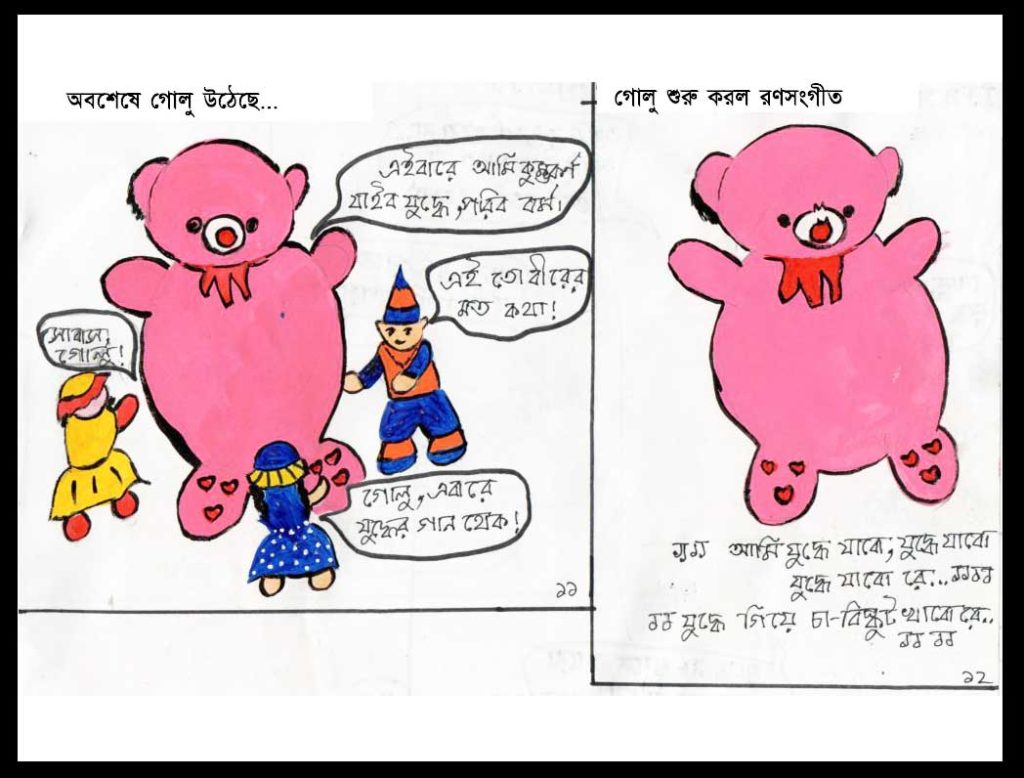 অবশেষে গোলু উঠেছে...
এইবারে আমি কুম্ভকর্ণ
যাইব যুদ্ধে, পরিব বর্ম।
এই তো বীরের
মত কথা!
সাবাস,
গোলু!
গোলু, এবারে
যুদ্ধের গান হোক!
১১
গোলু শুরু করল রণসংগীত
আমি যুদ্ধে যাবো, যুদ্ধে যাবো
যুদ্ধে যাবো রে...
যুদ্ধে গিয়ে চা-বিস্কুট খাবো রে..
১২